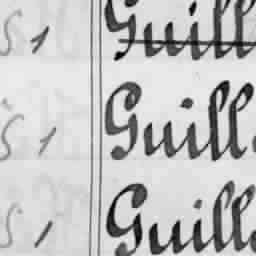 S 1 Guill
S 1 Guill
S 1 Guill